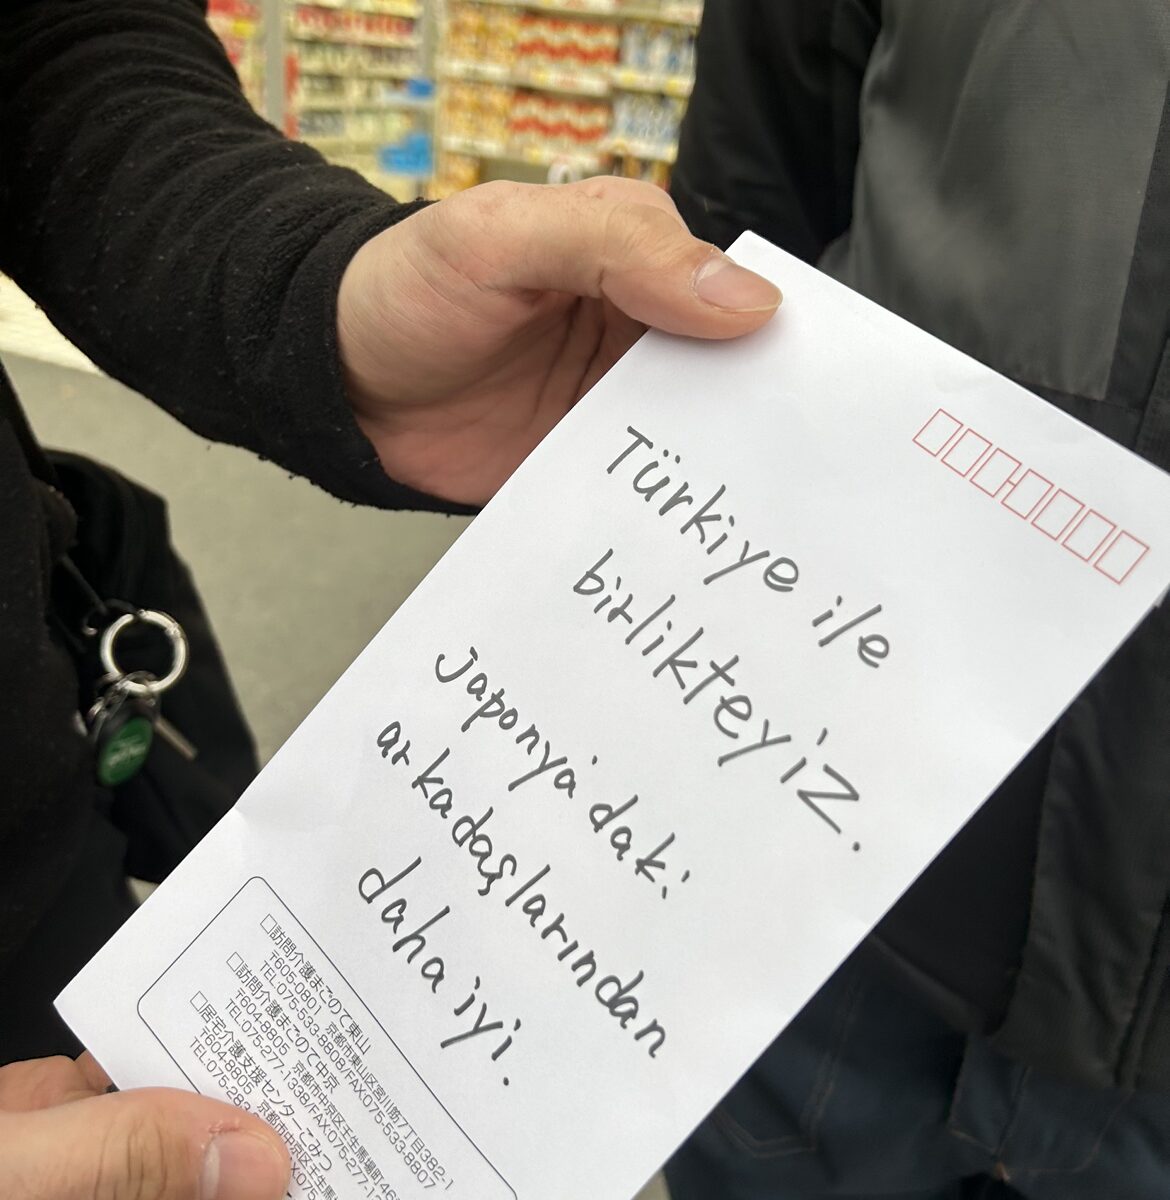 Türkiye ile
birlikteyiz.
Japonya'daki
arkadaşlarından
daha iyi.
□訪問介護まごのて東山
〒605-0801 京都市東山区宮川筋7丁目382-1
TEL.075-533-8808/FAX.075-533-8807
□訪問介護まごのて中京
〒604-8805 京都市中京区壬生馬場町
TEL.075-277-1338/FAX.075-277-
□居宅介護支援センターこみつ
〒604-8805 京都市中京区壬生馬
TEL.075-283-